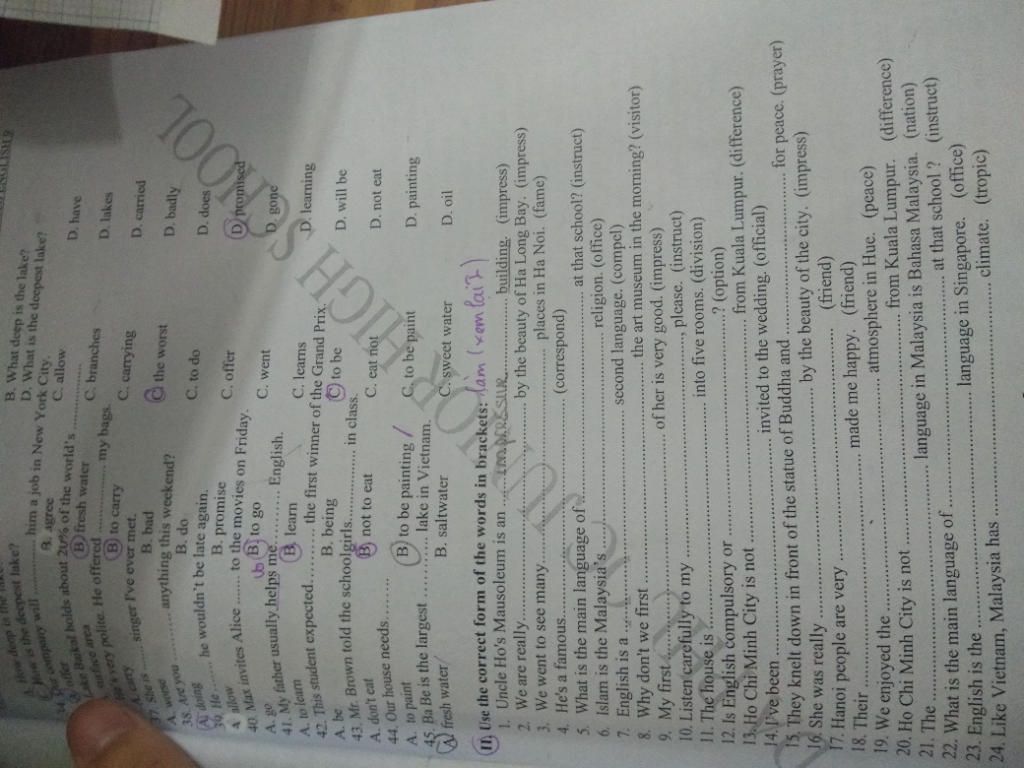 ENGLISH 9
How deep is the lake? B. What deep is the lake?
How is the deepest lake? D. What is the deepest lake?
The company will .......... him a job in New York City.
offer B. agree C. allow D. have
Lake Baikal holds about 20% of the world's ..........
surface area B. fresh water C. branches D. lakes
He's very polite. He offered .......... my bags.
A. carry B. to carry C. carrying D. carried
37. She is ....... singer I've ever met.
A. worse B. bad C. the worst D. badly
38. Are you .......... anything this weekend?
A. doing B. do C. to do D. does
39. He ........ he wouldn't be late again.
A. allow B. promise C. offer D. promised
40. Max invites Alice ....... to the movies on Friday.
A. go B. to go C. went D. gone
41. My father usually helps me .......... English.
A. to learn B. learn C. learns D. learning
42. This student expected .......... the first winner of the Grand Prix.
A. be B. being C. to be D. will be
43. Mr. Brown told the schoolgirls .......... in class.
A. don't eat B. not to eat C. eat not D. not eat
44. Our house needs ..........
A. to paint B. to be painting C. to be paint D. painting
45. Ba Be is the largest .......... lake in Vietnam.
A. fresh water B. saltwater C. sweet water D. oil
II. Use the correct form of the words in brackets:
1. Uncle Ho's Mausoleum is an .......... building. (impress)
2. We are really .......... by the beauty of Ha Long Bay. (impress)
3. We went to see many .......... places in Ha Noi. (fame)
4. He's a famous .......... (correspond)
5. What is the main language of .......... at that school? (instruct)
6. Islam is the Malaysia's .......... religion. (office)
7. English is a .......... second language. (compel)
8. Why don't we first .......... the art museum in the morning? (visitor)
9. My first .......... of her is very good. (impress)
10. Listen carefully to my .........., please. (instruct)
11. The house is .......... into five rooms. (division)
12. Is English compulsory or ..........? (option)
13. Ho Chi Minh City is not .......... from Kuala Lumpur. (difference)
14. I've been .......... invited to the wedding. (official)
15. They knelt down in front of the statue of Buddha and .......... for peace. (prayer)
16. She was really .......... by the beauty of the city. (impress)
17. Hanoi people are very .......... (friend)
18. Their .......... made me happy. (friend)
19. We enjoyed the .......... atmosphere in Hue. (peace)
20. Ho Chi Minh City is not .......... from Kuala Lumpur. (difference)
21. The .......... language in Malaysia is Bahasa Malaysia. (nation)
22. What is the main language of .......... at that school ? (instruct)
23. English is the .......... language in Singapore. (office)
24. Like Vietnam, Malaysia has .......... climate. (tropic)
JUNIOR HIGH SCHOOL